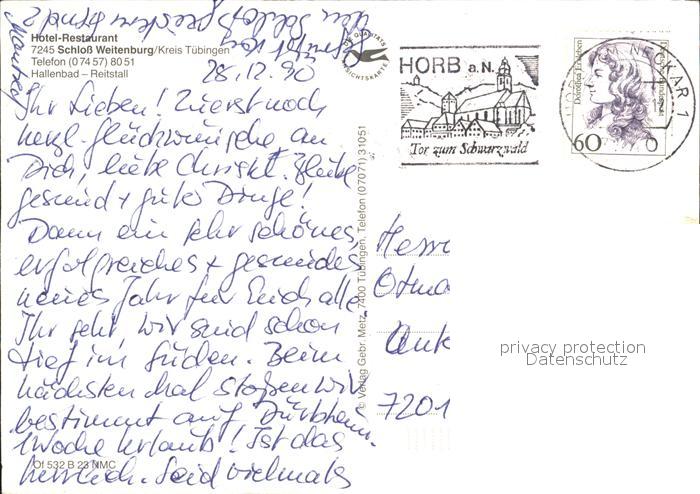 Hotel-Restaurant
7245 Schloß Weitenburg/Kreis Tübingen
Telefon (0 74 57) 80 51
Hallenbad – Reitstall
28.12.90
Ihr Lieben! Zuerst noch
herzl. Glückwünsche an
Dich, liebe Christl. Bleibe
gesund + guter Dinge!
Dann ein sehr schönes,
erfolgreiches + gesundes
neues Jahr für Euch alle.
Ihr seht, wir sind schon
tief im Süden. Beim
nächsten Mal stoßen wir
bestimmt auf Dürbheim.
1 Woche Urlaub! Ist das
herrlich. Seid vielmals
Of 532 B 23 NMC
© Verlag Gebr. Metz, 7400 Tübingen, Telefon (07071) 31051
HORB a.N.
Tor zum Schwarzwald
Dorothea Erxleben
60
HORB AM NECKAR 1
Herrn
Otma
7201
privacy protection
Datenschutz